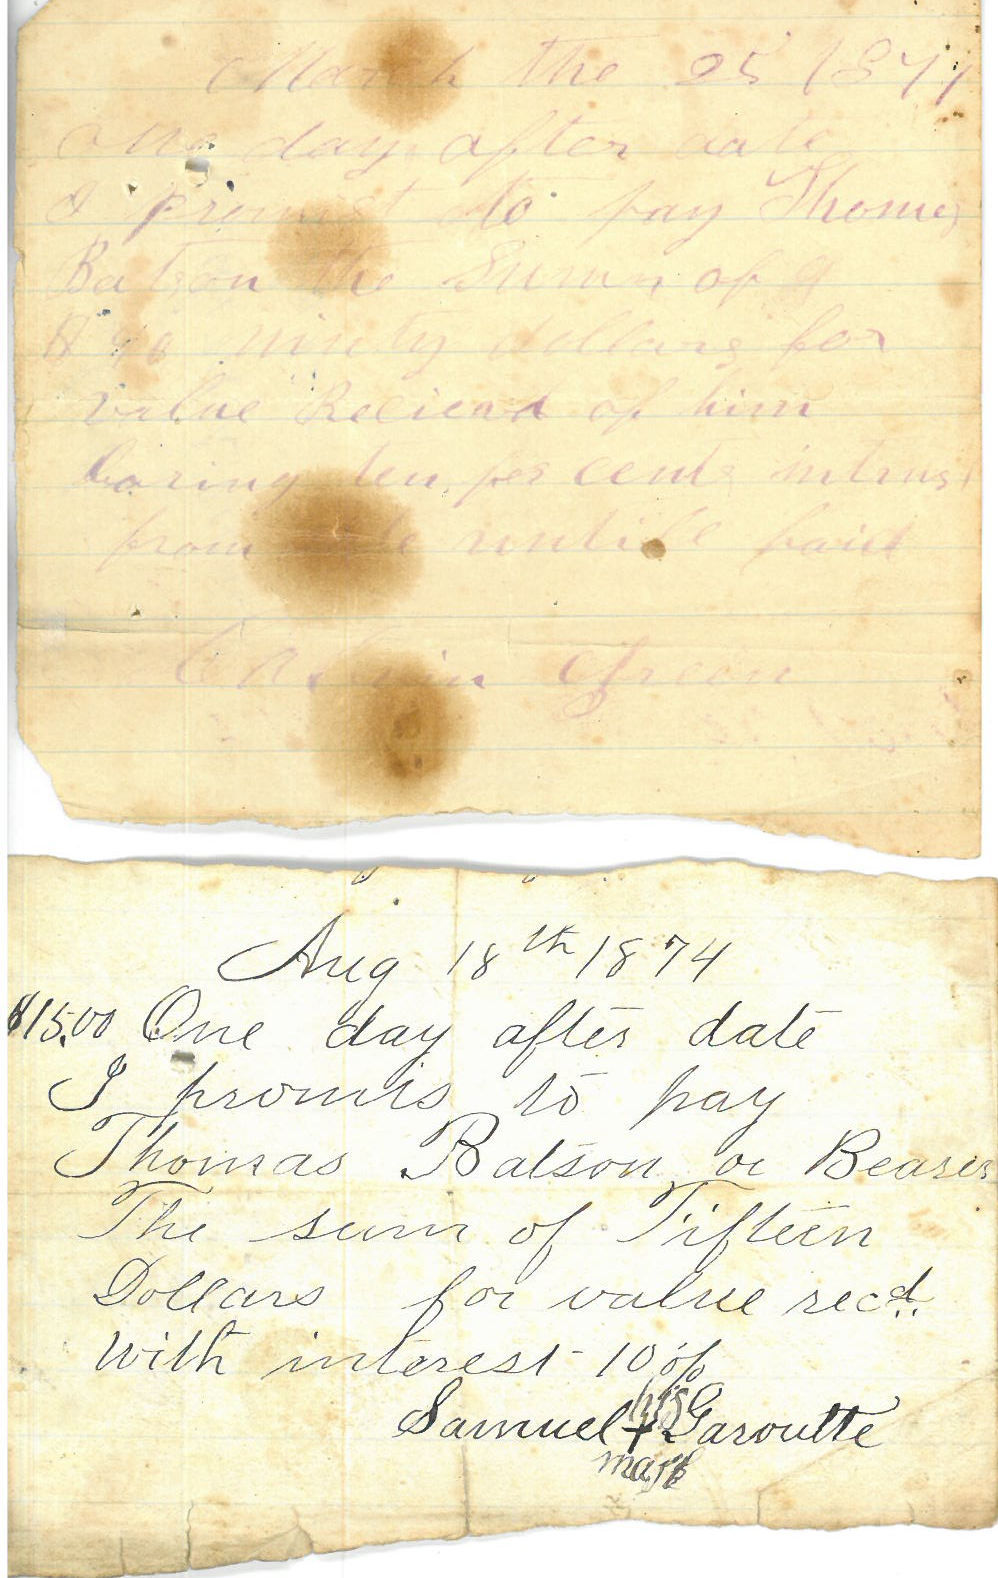 March the 25 1877
one day after date
I promist to pay Thomas
Batson the Sumn of
$90 ninty dollars for
value Recieved of him
baring ten per cent intrust
from date untill paid
Calvin Green
Aug 18th 1874
$15.00 One day after date
I promis to pay
Thomas Batson or Bearer
The sum of Fifteen
Dollars for value recd.
With interest 10 %
his
Samuel + Garoutte
mark